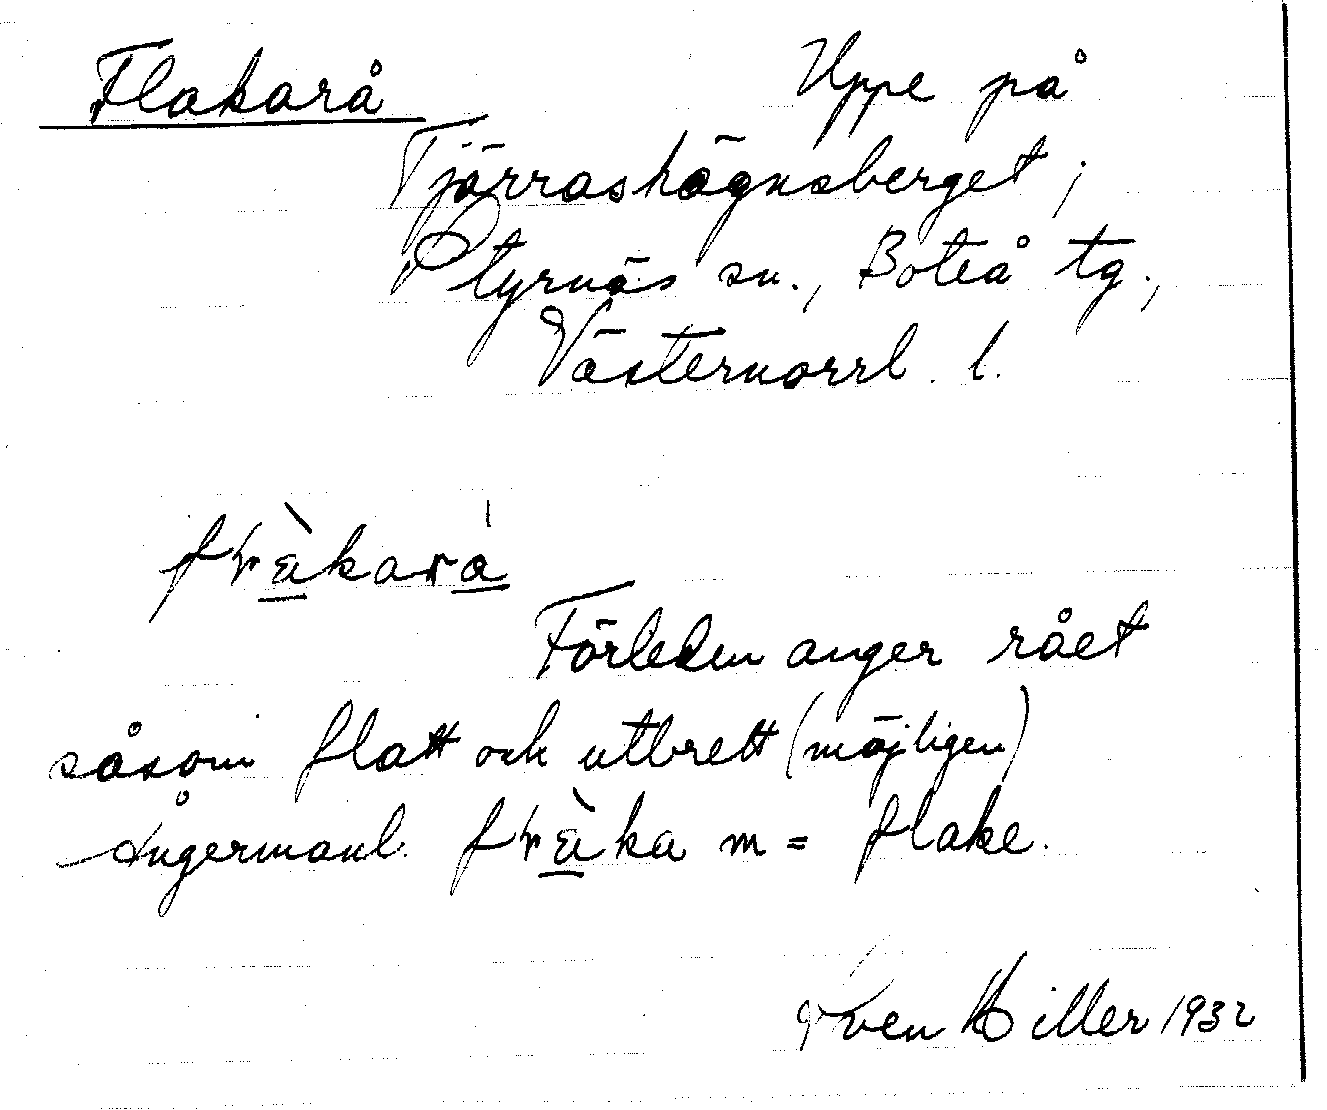 Flakarå Uppe på
Tjärrashögnsberget;
Styrnäs sn., Boteå tg.,
Västernorrl. l.
fràkará
Förleden anger rået
såsom flatt och utbrett (möjligen)
Ångermanl. fràka m = flake.
Sven Hiller 1932